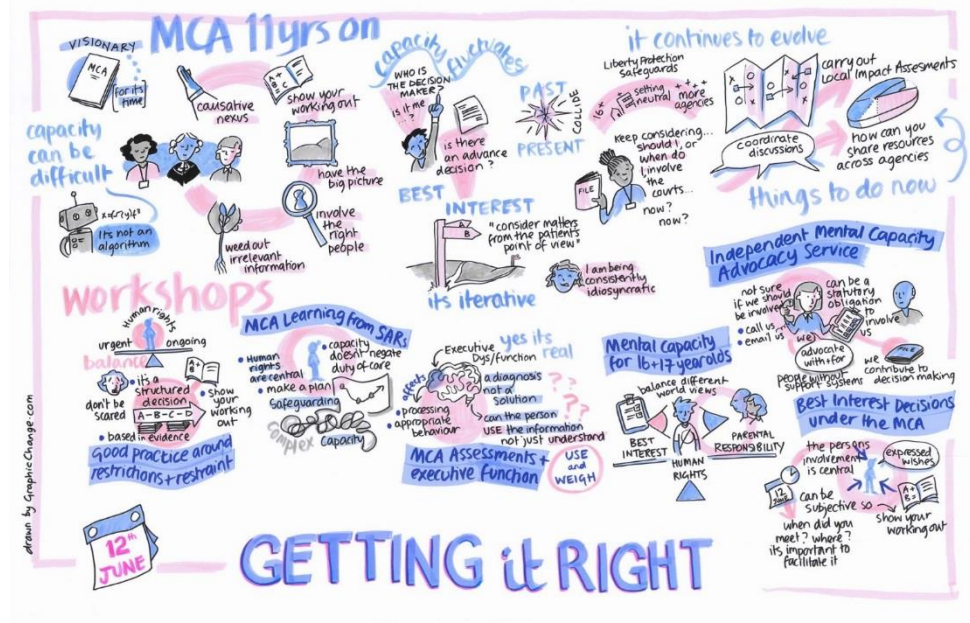 MCA 11yrs on
VISIONARY
MCA
for its
time
causative
nexus
A+
B=
C
show your
working out
capacity
can be
difficult
Its not an
algorithm
weed out
irrelevant
information
have the
big picture
involve
the
right
people
Capacity
fluctuates
WHO IS
THE DECISION
MAKER?
is it me
?
is there
an advance
decision?
PAST
PRESENT
COLLIDE
BEST
INTEREST
A
B
"consider matters
from the patients
point of view"
its iterative
I am being
consistently
idiosyncratic
it continues to evolve
Liberty Protection
Safeguards
16+
setting
neutral
more
agencies
keep considering...
should I, or
when do
I, involve
the
courts...
now?
now?
FILE
coordinate
discussions
carry out
Local Impact Assesments
how can you
share resources
across agencies
things to do now
workshops
Human rights
urgent
ongoing
balance
it's a
structured
decision
don't be
scared
A-B-C-D
show
your
working
out
based in evidence
Good practice around
restrictions + restraint
MCA Learning from SARs
Human
rights
are central
capacity
doesn't negate
duty of care
make a plan
Safeguarding
complex
Capacity
yes its
real
Executive
Dys/function
affects
processing
appropriate
behaviour
a diagnosis
not a
solution
can the person
USE the information
not just understand
???
MCA Assessments +
executive function
USE
and
WEIGH
Mental Capacity
for 16+17 year olds
balance different
world views
BEST
INTEREST
HUMAN
RIGHTS
PARENTAL
RESPONSIBILITY
Independent Mental Capacity
Advocacy Service
not sure
if we should
be involved?
call us
email us
can be a
statutory
obligation
to
involve
us
we
advocate
with + for
people without
support systems
FILE
we
contribute to
decision making
Best Interest Decisions
under the MCA
the persons
involvement
is central
expressed
wishes
12
JUNE
can be
subjective so
A+
B=
show your
working out
when did you
meet? where?
its important to
facilitate it
12th
JUNE
GETTING it RIGHT
drawn by GraphicChange.com